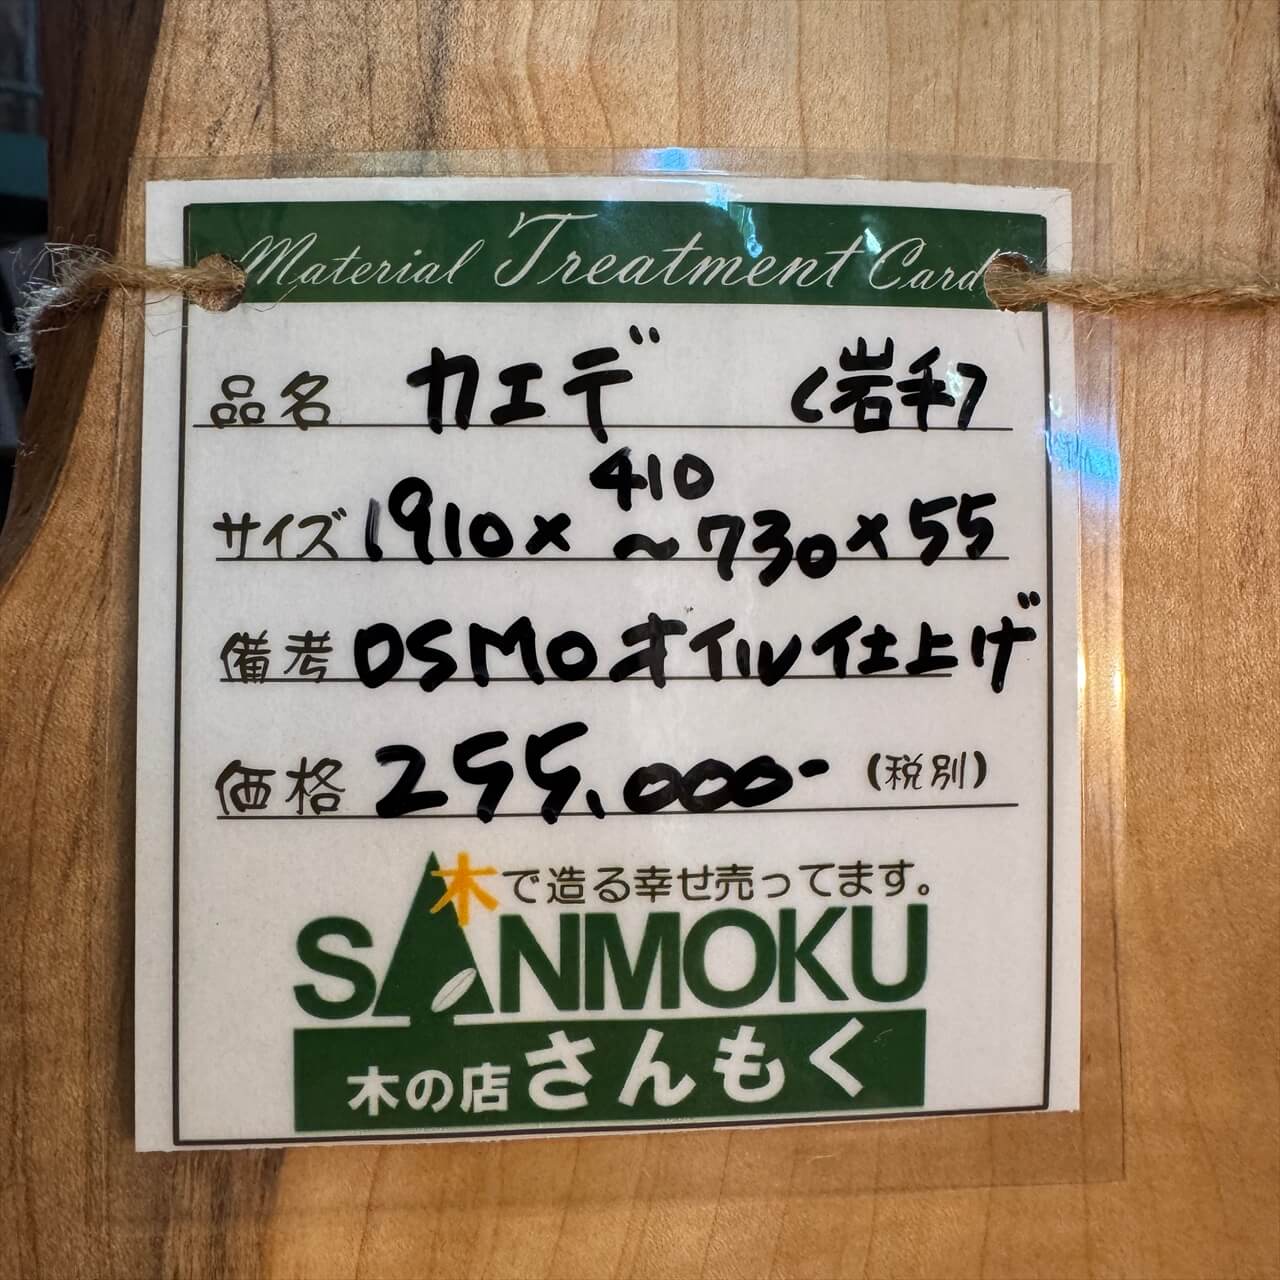 Material Treatment Card
品名 カエデ (岩手)
サイズ 1910×410～730×55
備考 OSMOオイル仕上げ
価格 255,000- (税別)
木で造る幸せ売ってます。
SANMOKU
木の店さんもく